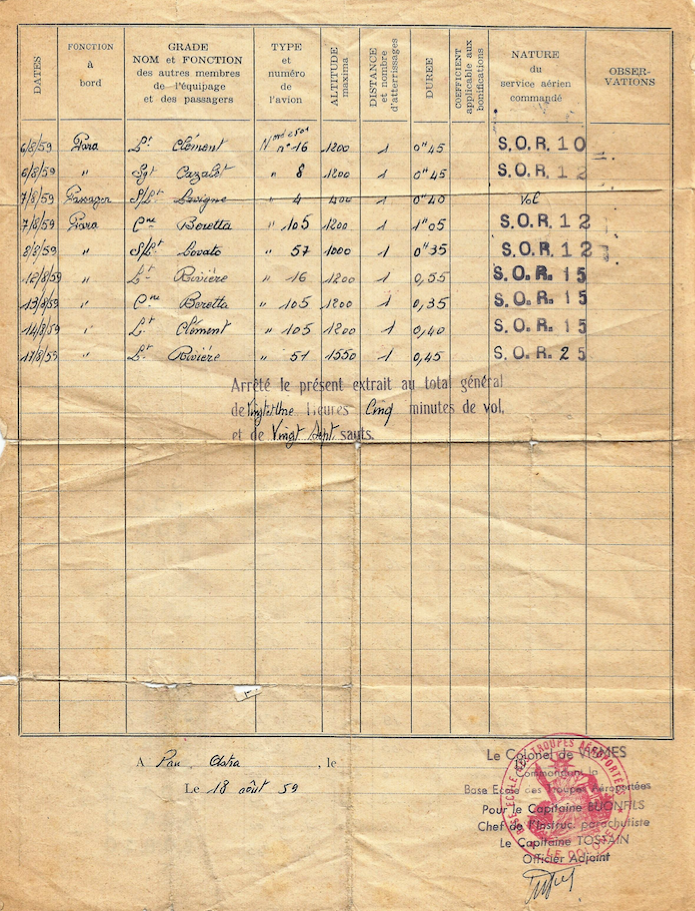 DATES
FONCTION
à
bord
GRADE
NOM et FONCTION
des autres membres
de l'équipage
et des passagers
TYPE
et
numéro
de
l'avion
ALTITUDE
maxima
DISTANCE
et nombre
d'atterrissages
DURÉE
COEFFICIENT
applicable aux
bonifications
NATURE
du
service aérien
commandé
OBSER-
VATIONS
6/8/59 Para Lt Clément n° 16 1200 1 0h45 S.O.R. 10
6/8/59 " Sgt Cazalot " 8 1200 1 0h45 S.O.R. 12
7/8/59 Passager S/Lt " 4 400 1 0h40 Vol
7/8/59 Para Cne Beretta " 105 1200 1 1h05 S.O.R. 12
8/8/59 " S/Lt Lovato " 57 1000 1 0h35 S.O.R. 12
12/8/59 " Lt Rivière " 16 1200 1 0,55 S.O.R. 15
13/8/59 " Cne Beretta " 105 1200 1 0,35 S.O.R. 15
14/8/59 " Lt Clément " 105 1200 1 0,40 S.O.R. 15
17/8/59 " Lt Rivière " 51 1550 1 0,45 S.O.R. 25
Arrêté le présent extrait au total général
de Vingt et Une Heures Cinq minutes de vol,
et de Vingt Sept sauts.
A Pau, , le
Le 18 août 59
Le Colonel de VISMES
Commandant la
Base Ecole des Troupes Aéroportées
Pour le Capitaine BUONFILS
Chef de l'Instruc. parachutiste
Le Capitaine TOSTAIN
Officier Adjoint
BASE ECOLE DES TROUPES AÉROPORTÉES
LE COLONEL